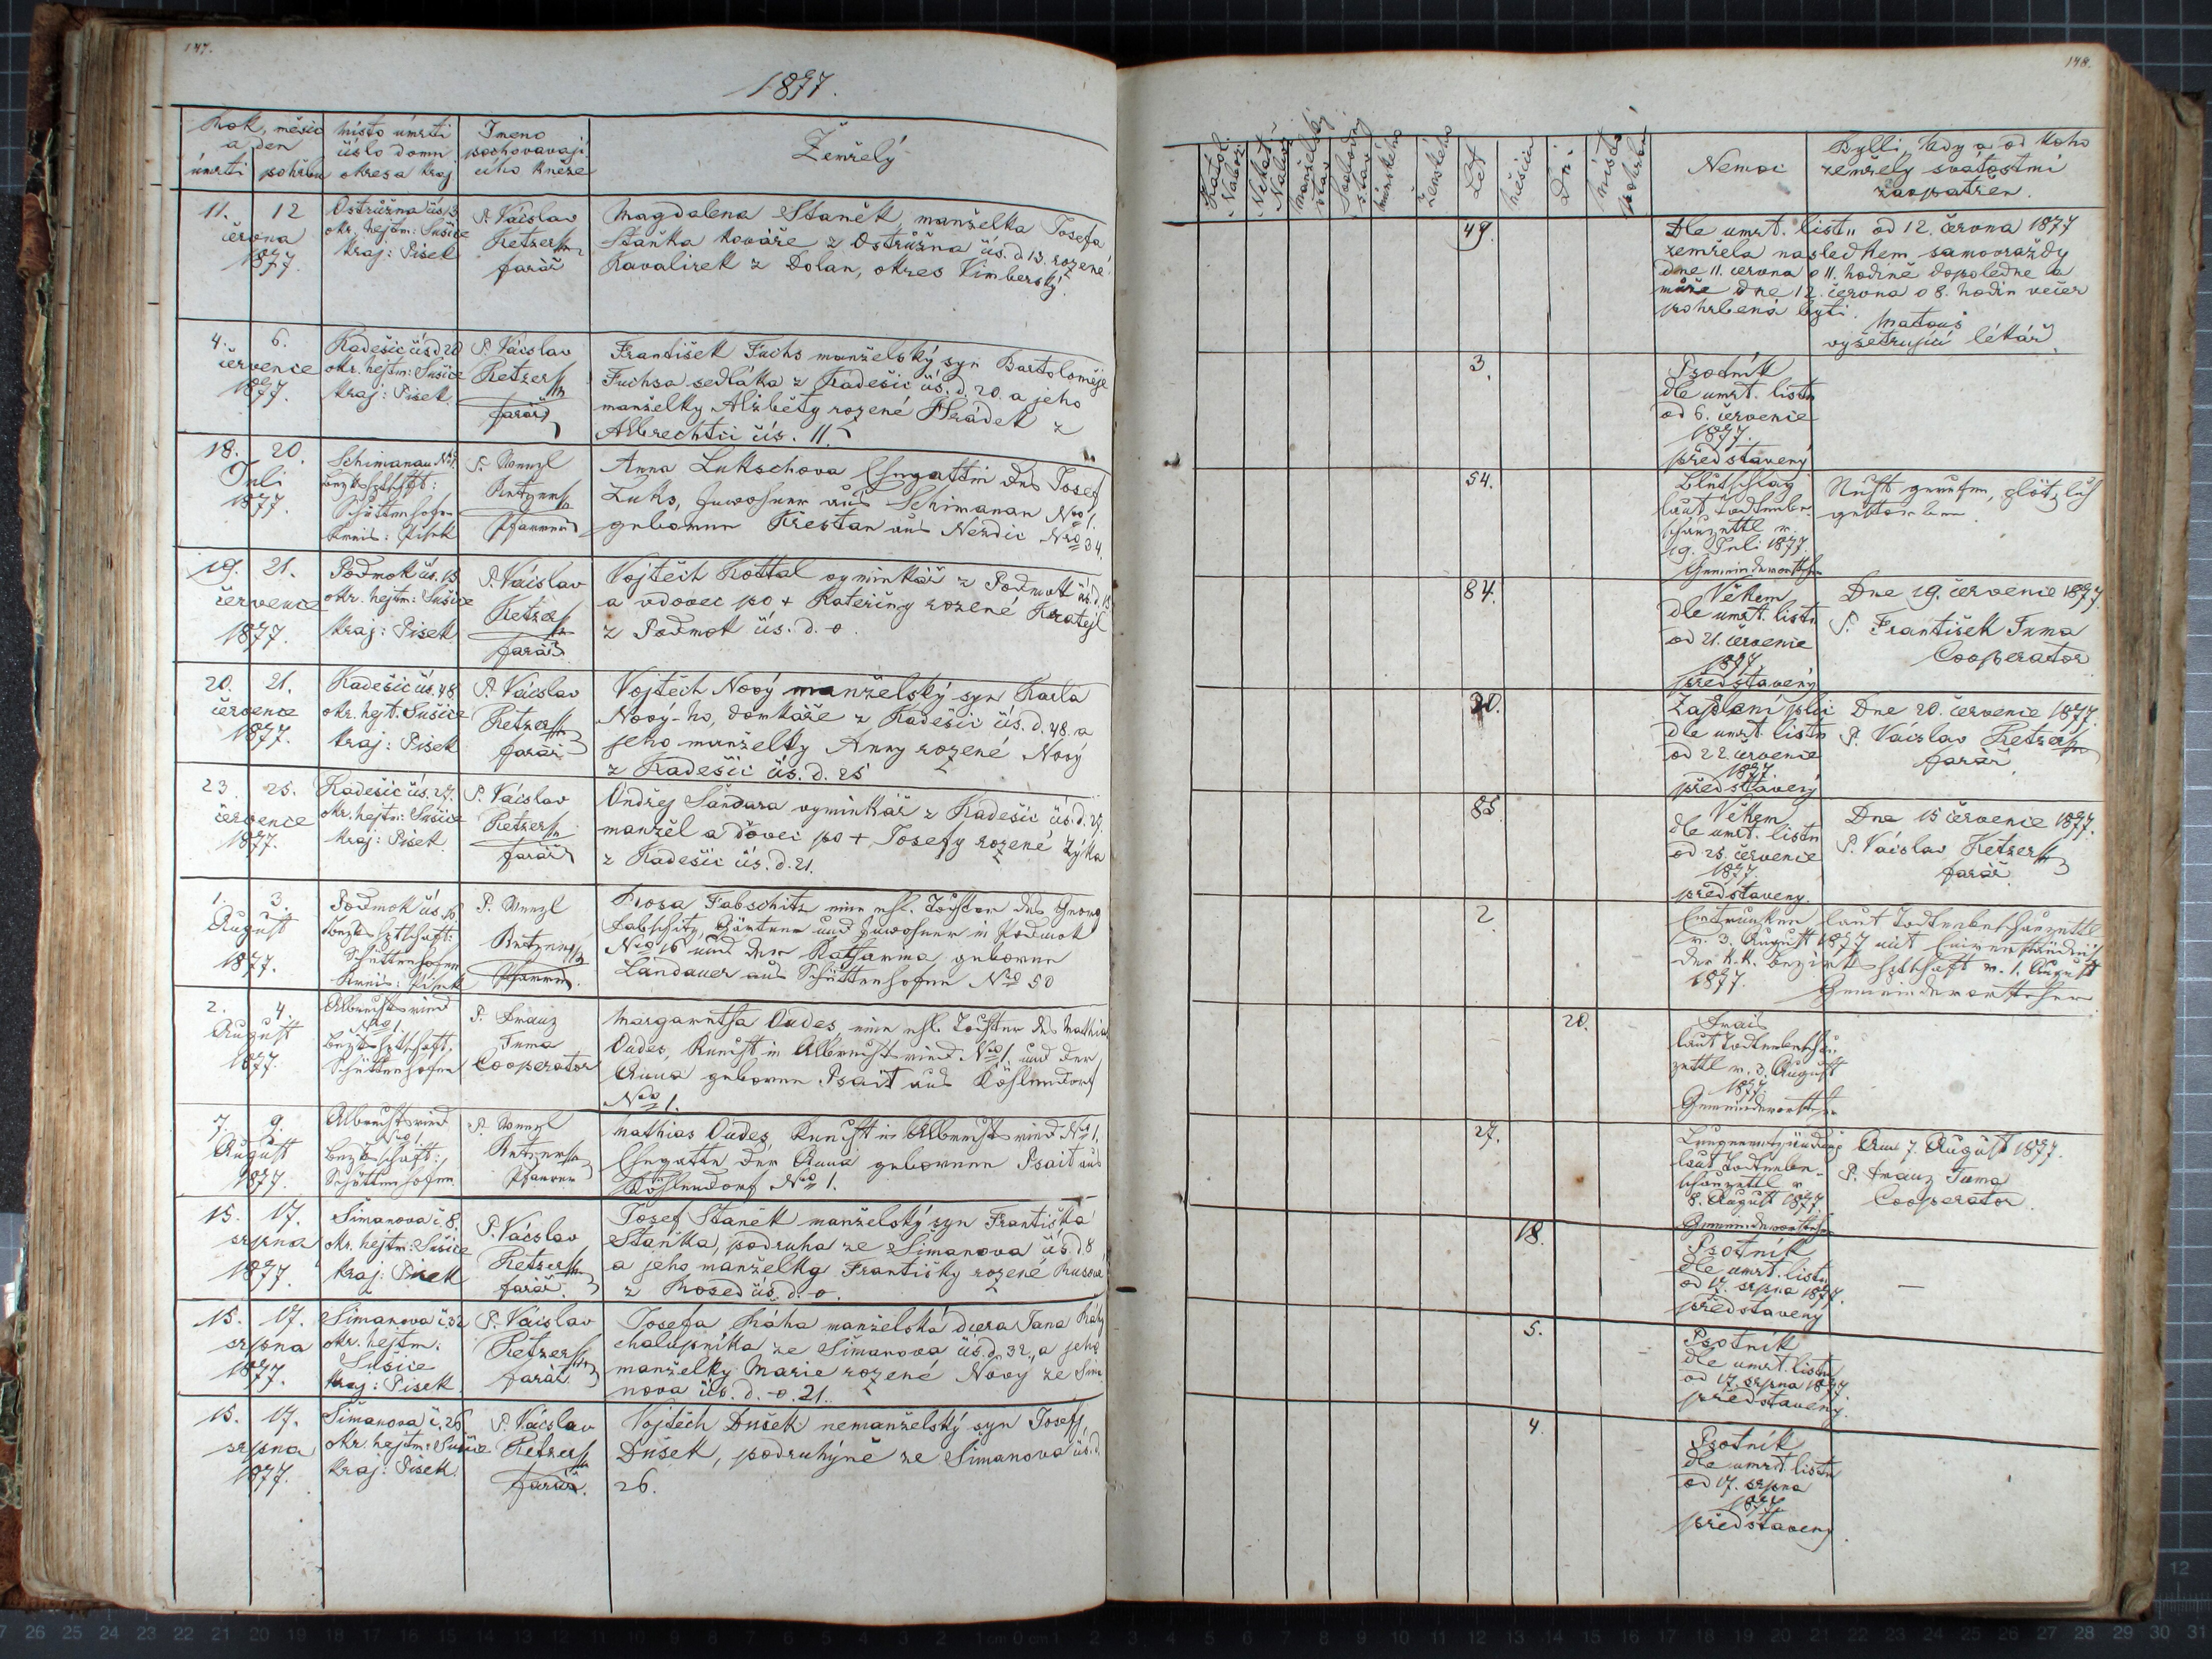 147.
1877.
Rok, měsíc a den
úmrtí
pohřbu
místo úmrtí
číslo domu
okres a kraj
Jmeno
pochovavají
cího kněze
Zemřelý
11. 12
června
1877.
Ostružna čís. 13
okr. hejtm: Sušice
kraj: Písek
P. Václav
Ketzer
farář
Magdalena Staněk, manželka Josefa
Staňka kováře z Ostružna čís. d 13. rozené
Kavalirek z Dolan, okres Vimberský.
4. 6.
července
1877.
Kadešic čís d 20
okr. hejtm: Sušice
kraj: Písek.
P. Václav
Ketzer
farář
František Fuchs manželský syn Bartoloměje
Fuchsa sedláka z Kadešic čís. d. 20. a jeho
manželky Alžběty rozené Hrádek z
Albrechtci čís. 11.
18. 20.
Juli
1877.
Schimanau No 1.
Bezkshptschft:
Schüttenhofen
Kreis: Pisek
P. Wenzl
Ketzer
Pfarrer
Anna Lukschova Ehegattin des Josef
Luks, Inwohner aus Schimanau Nro 1.
geborenen Křestan aus Nezdic Nro 34.
19. 21.
července
1877.
Podmok čís. 13
okr. hejtm: Sušice
kraj: Písek
P. Václav
Ketzer
farář
Vojtěch Kottal vyminkář z Podmok čís. d. 13
a vdovec po + Kateřiny rozené Kratejl
z Podmok čís. d. o.
20. 21.
července
1877.
Kadešic čís. 48
okr. hejt. Sušice
kraj: Písek
P. Václav
Ketzer
farář
Vojtěch Nový manželský syn Karla
Nový-ho, domkáře z Kadešic čís. d. 48. a
jeho manželky Anny rozené Nový
z Kadešic čís. d. 25
23. 25.
července
1877.
Kadešic čís. 27.
okr. hejtm: Sušice
kraj: Písek
P. Václav
Ketzer
farář
Ondřej Šandara vyminkář z Kadešic čís. d. 27.
manžel a dovec po + Josefy rozené Zýka
z Kadešic čís. d. 21.
1. 3.
August
1877.
Podmok čís. 16
Bezkshptschaft:
Schüttenhofen
Kreis: Pisek
P. Wenzl
Ketzer
Pfarrer
Rosa Fabschitz eine ehl. Tochter des Georg
Fabschitz, Gärtner und Inwohner in Podmok
Nro 16 und der Katharina geborene
Landauer aus Schüttenhofen Nro 50
2. 4.
August
1877.
Albrechtsried
Nro 1.
Bezkshptschaft.
Schüttenhofen
P. Franz
Tuma
Cooperator
Margaretha Oudes, eine ehl. Tochter des Mathias
Oudes, Knecht in Albrechtsried Nro 1. und der
Anna geborene Psait aus Köhlendorf
Nro 1.
7. 9.
August
1877.
Albrechtsried
Nro 1.
Bezkschaft:
Schüttenhofen
P. Wenzl
Ketzer
Pfarrer
Mathias Oudes, Knecht in Albrechtsried Nro 1.
Ehegatte der Anna geborenen Psait aus
Köhlendorf Nro 1.
15. 17.
srpna
1877.
Šimanova č. 8.
okr. hejtm: Sušice
kraj: Písek
P. Václav
Ketzer
farář.
Josef Staněk manželský syn Františka
Staňka, podruha ze Šimanova čís. d. 8
a jeho manželky Františky rozené Rusová
z Rosed čís. d. o.
15. 17.
srpna
1877.
Šimanova č. 32
okr. hejtm:
Sušice
kraj: Písek
P. Václav
Ketzer
farář
Josefa Ráha manželská dcera Jana Ráhy
chalupníka ze Šimanova čís. d. 32., a jeho
manželky Marie rozené Nový ze Šima
nova čís. d. o. 21.
15. 17.
srpna
1877.
Šimanova č. 26
okr. hejtm: Sušice
kraj: Písek
P. Václav
Ketzer
farář.
Vojtěch Dušek nemanželský syn Josefy
Dušek, podruhýně ze Šimanova čís. d.
26.
148.
Katol. Nabož.
Nekat. Nabož.
manželský stav
Svobodný stav
mužského
ženského
Let
měsíců
Dní
místo pohřbu
Nemoc
Bylli, kdy a od koho
zemřelý svatostmi
zaopatřen.
49.
Dle umrt. list" od 12. června 1877
zemřela nasledkem samovraždy
dne 11. června o 11. hodině dopoledne a
může dne 12. června o 8. hodin večer
pohrbená byti.
Matouš
vyšetrující lékář
3.
Psotník
dle umrt. listu
od 6. července
1877.
představený
54.
Blutschlag
laut Todtenbe-
schauzettl v.
19. Juli 1877.
Gemeindevorsteher
Nicht gerufen, plötzlich
gestorben
84.
Věkem
dle umrt. listu
od 21. července
1877.
představený
Dne 19. července 1877.
P. František Tuma
Cooperator
30.
Zapalení plic
dle umrt. listu
od 22. července
1877
představený
Dne 20. července 1877.
P. Václav Ketzer
farář
85.
Věkem
dle umrt. listu
od 25. července
1877.
představeny.
Dne 15 července 1877.
P. Václav Ketzer
farář
2.
Ertrunken laut Todtenbeschauzettl
v. 3. August 1877 mit Einverständniß
der k. k. Bezirkshptschaft v. 1. August
1877. Gemeindevorsteher
20.
Frais
laut Todtenbeschau
zettl v. 3. August
1877
Gemeindevorsteher
27.
Lungenentzündung
laut Todtenbe-
schauzettl v.
8. August 1877.
Gemeindevorsteher
Am 7. August 1877.
P. Franz Tuma
Cooperator
18.
Psotník
dle umrt. listu
od 17. srpna 1877.
představeny
—
5.
Psotník
dle umrt. listu
od 17. srpna 1877.
představeny.
4.
Psotník
dle umrt. listu
od 17. srpna
1877
představeny.